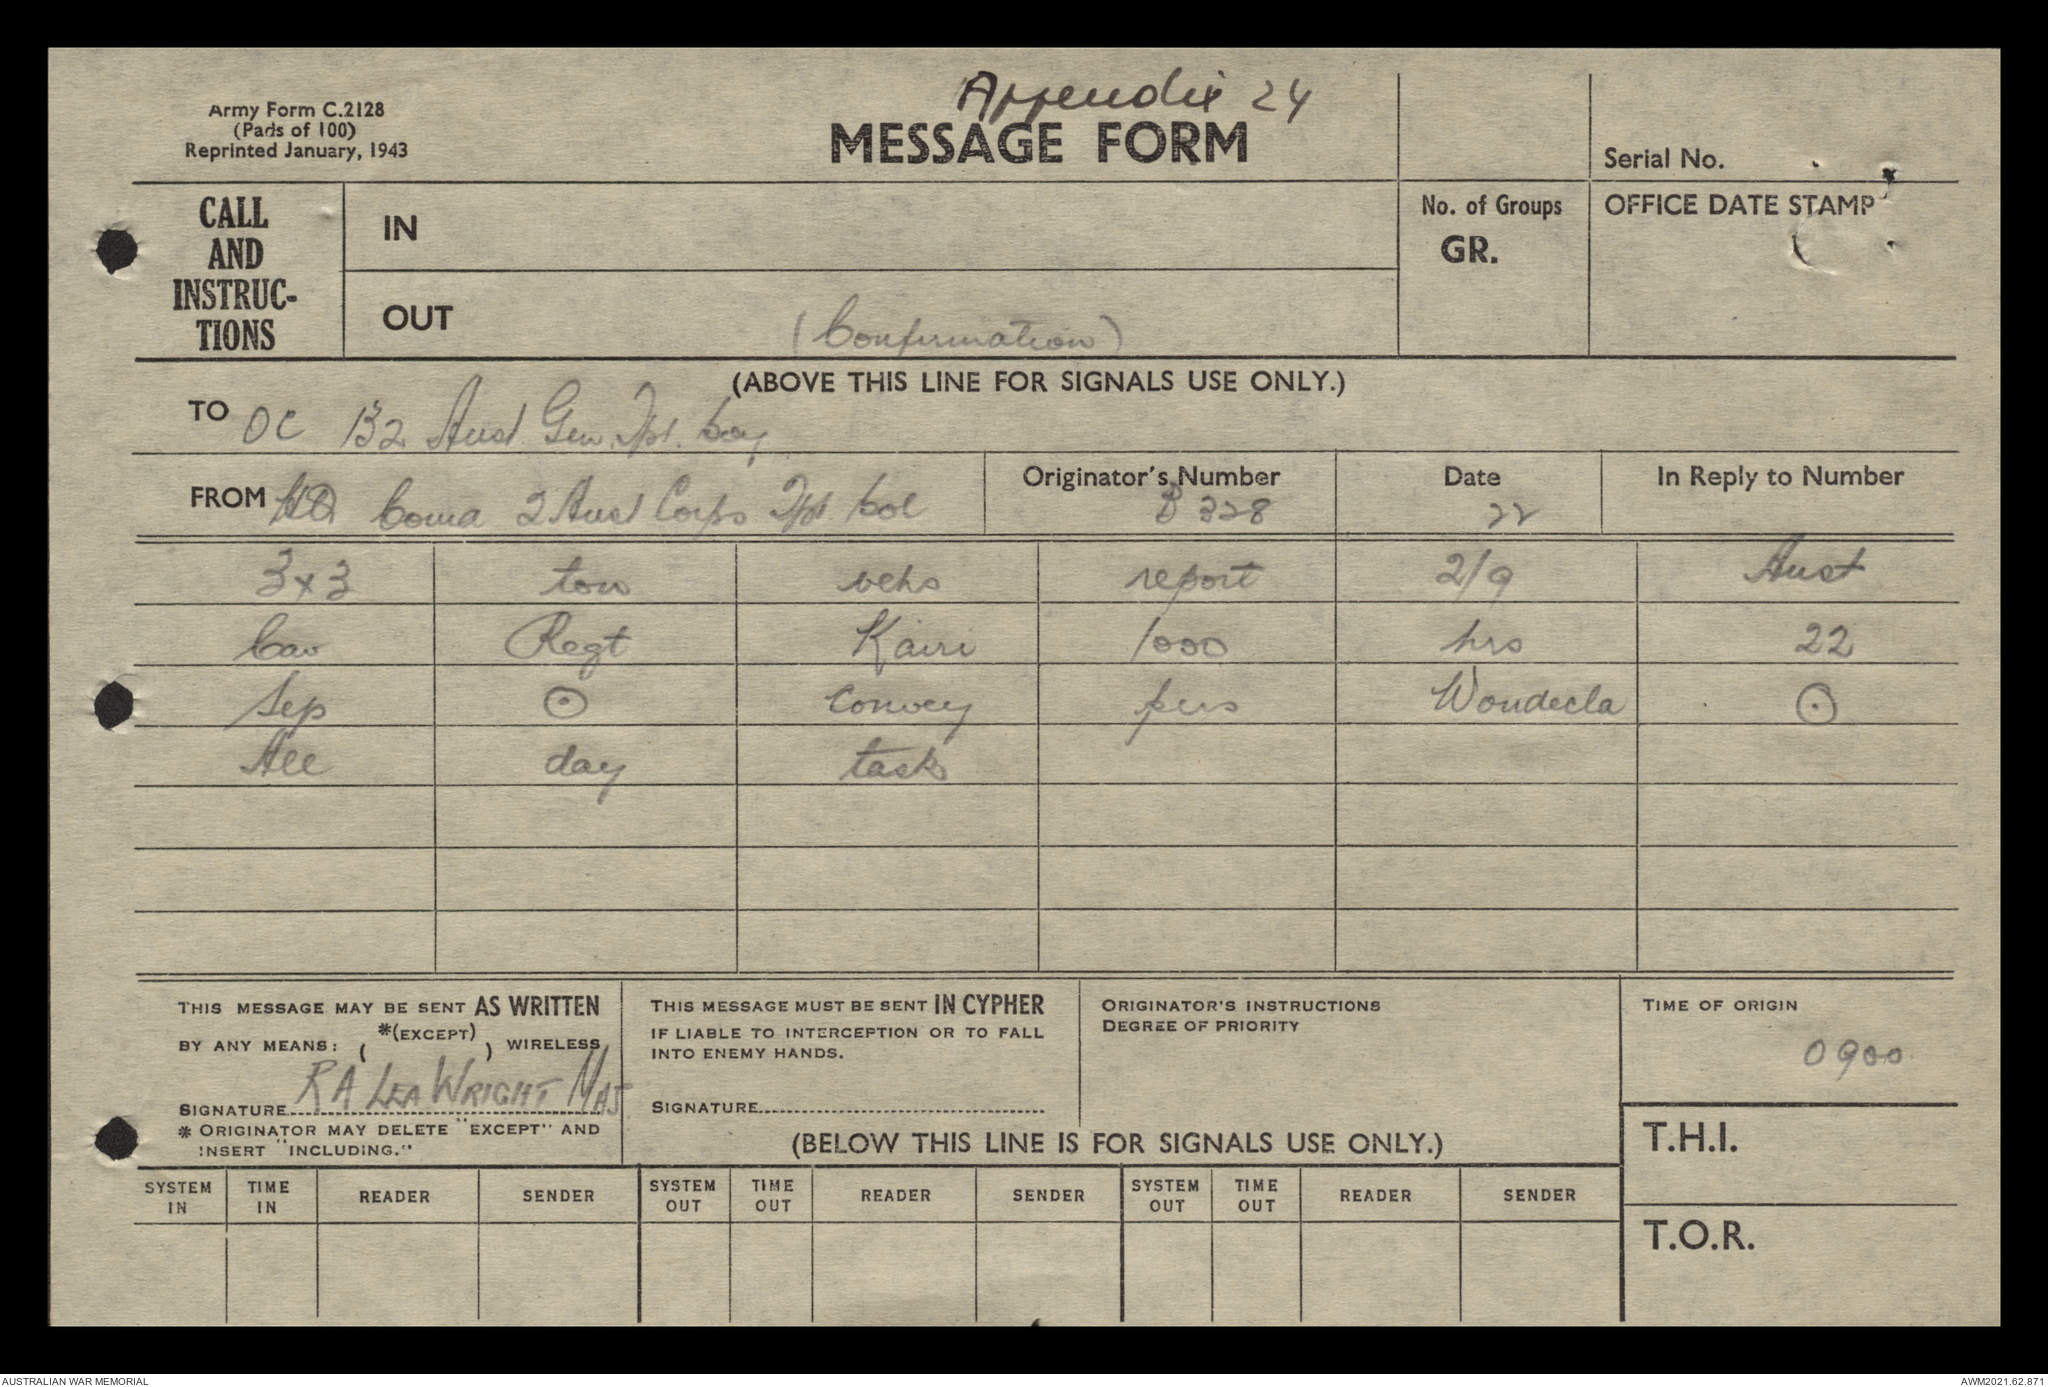 Appendix 24
Army Form C.2128
(Pads of 100)
Reprinted January, 1943
MESSAGE FORM
Serial No.
CALL
AND
INSTRUC-
TIONS
IN
No. of Groups
GR.
OFFICE DATE STAMP
OUT
(Confirmation)
(ABOVE THIS LINE FOR SIGNALS USE ONLY.)
TO OC 132 Aust. Gen. Tpt. Coy
FROM HQ Comd 2 Aust Corps Tpt Col
Originator's Number B 328
Date 22
In Reply to Number
3x3 ton vehs report 2/9 Aust
Cav Regt Kairi 1000 hrs 22
Sep ⊙ convey pers Wondecla ⊙
All day task
THIS MESSAGE MAY BE SENT AS WRITTEN
BY ANY MEANS: (*(EXCEPT)) WIRELESS
SIGNATURE R A LEA WRIGHT MAJ
* ORIGINATOR MAY DELETE "EXCEPT" AND
INSERT "INCLUDING."
THIS MESSAGE MUST BE SENT IN CYPHER
IF LIABLE TO INTERCEPTION OR TO FALL
INTO ENEMY HANDS.
SIGNATURE
ORIGINATOR'S INSTRUCTIONS
DEGREE OF PRIORITY
TIME OF ORIGIN
0900
(BELOW THIS LINE IS FOR SIGNALS USE ONLY.)
T.H.I.
SYSTEM IN TIME IN READER SENDER SYSTEM OUT TIME OUT READER SENDER SYSTEM OUT TIME OUT READER SENDER
T.O.R.
AUSTRALIAN WAR MEMORIAL
AWM2021.62.871